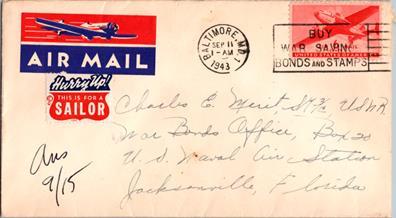 AIR MAIL
Hurry Up!
THIS IS FOR A
SAILOR
BALTIMORE, MD.
SEP 11
1-AM
1943
BUY
WAR SAVINGS
BONDS AND STAMPS
UNITED STATES OF AMERICA
Charles E. Merit USNR
War Bonds Office, Box 20
U. S. Naval Air Station
Jacksonville, Florida
Ans
9/15